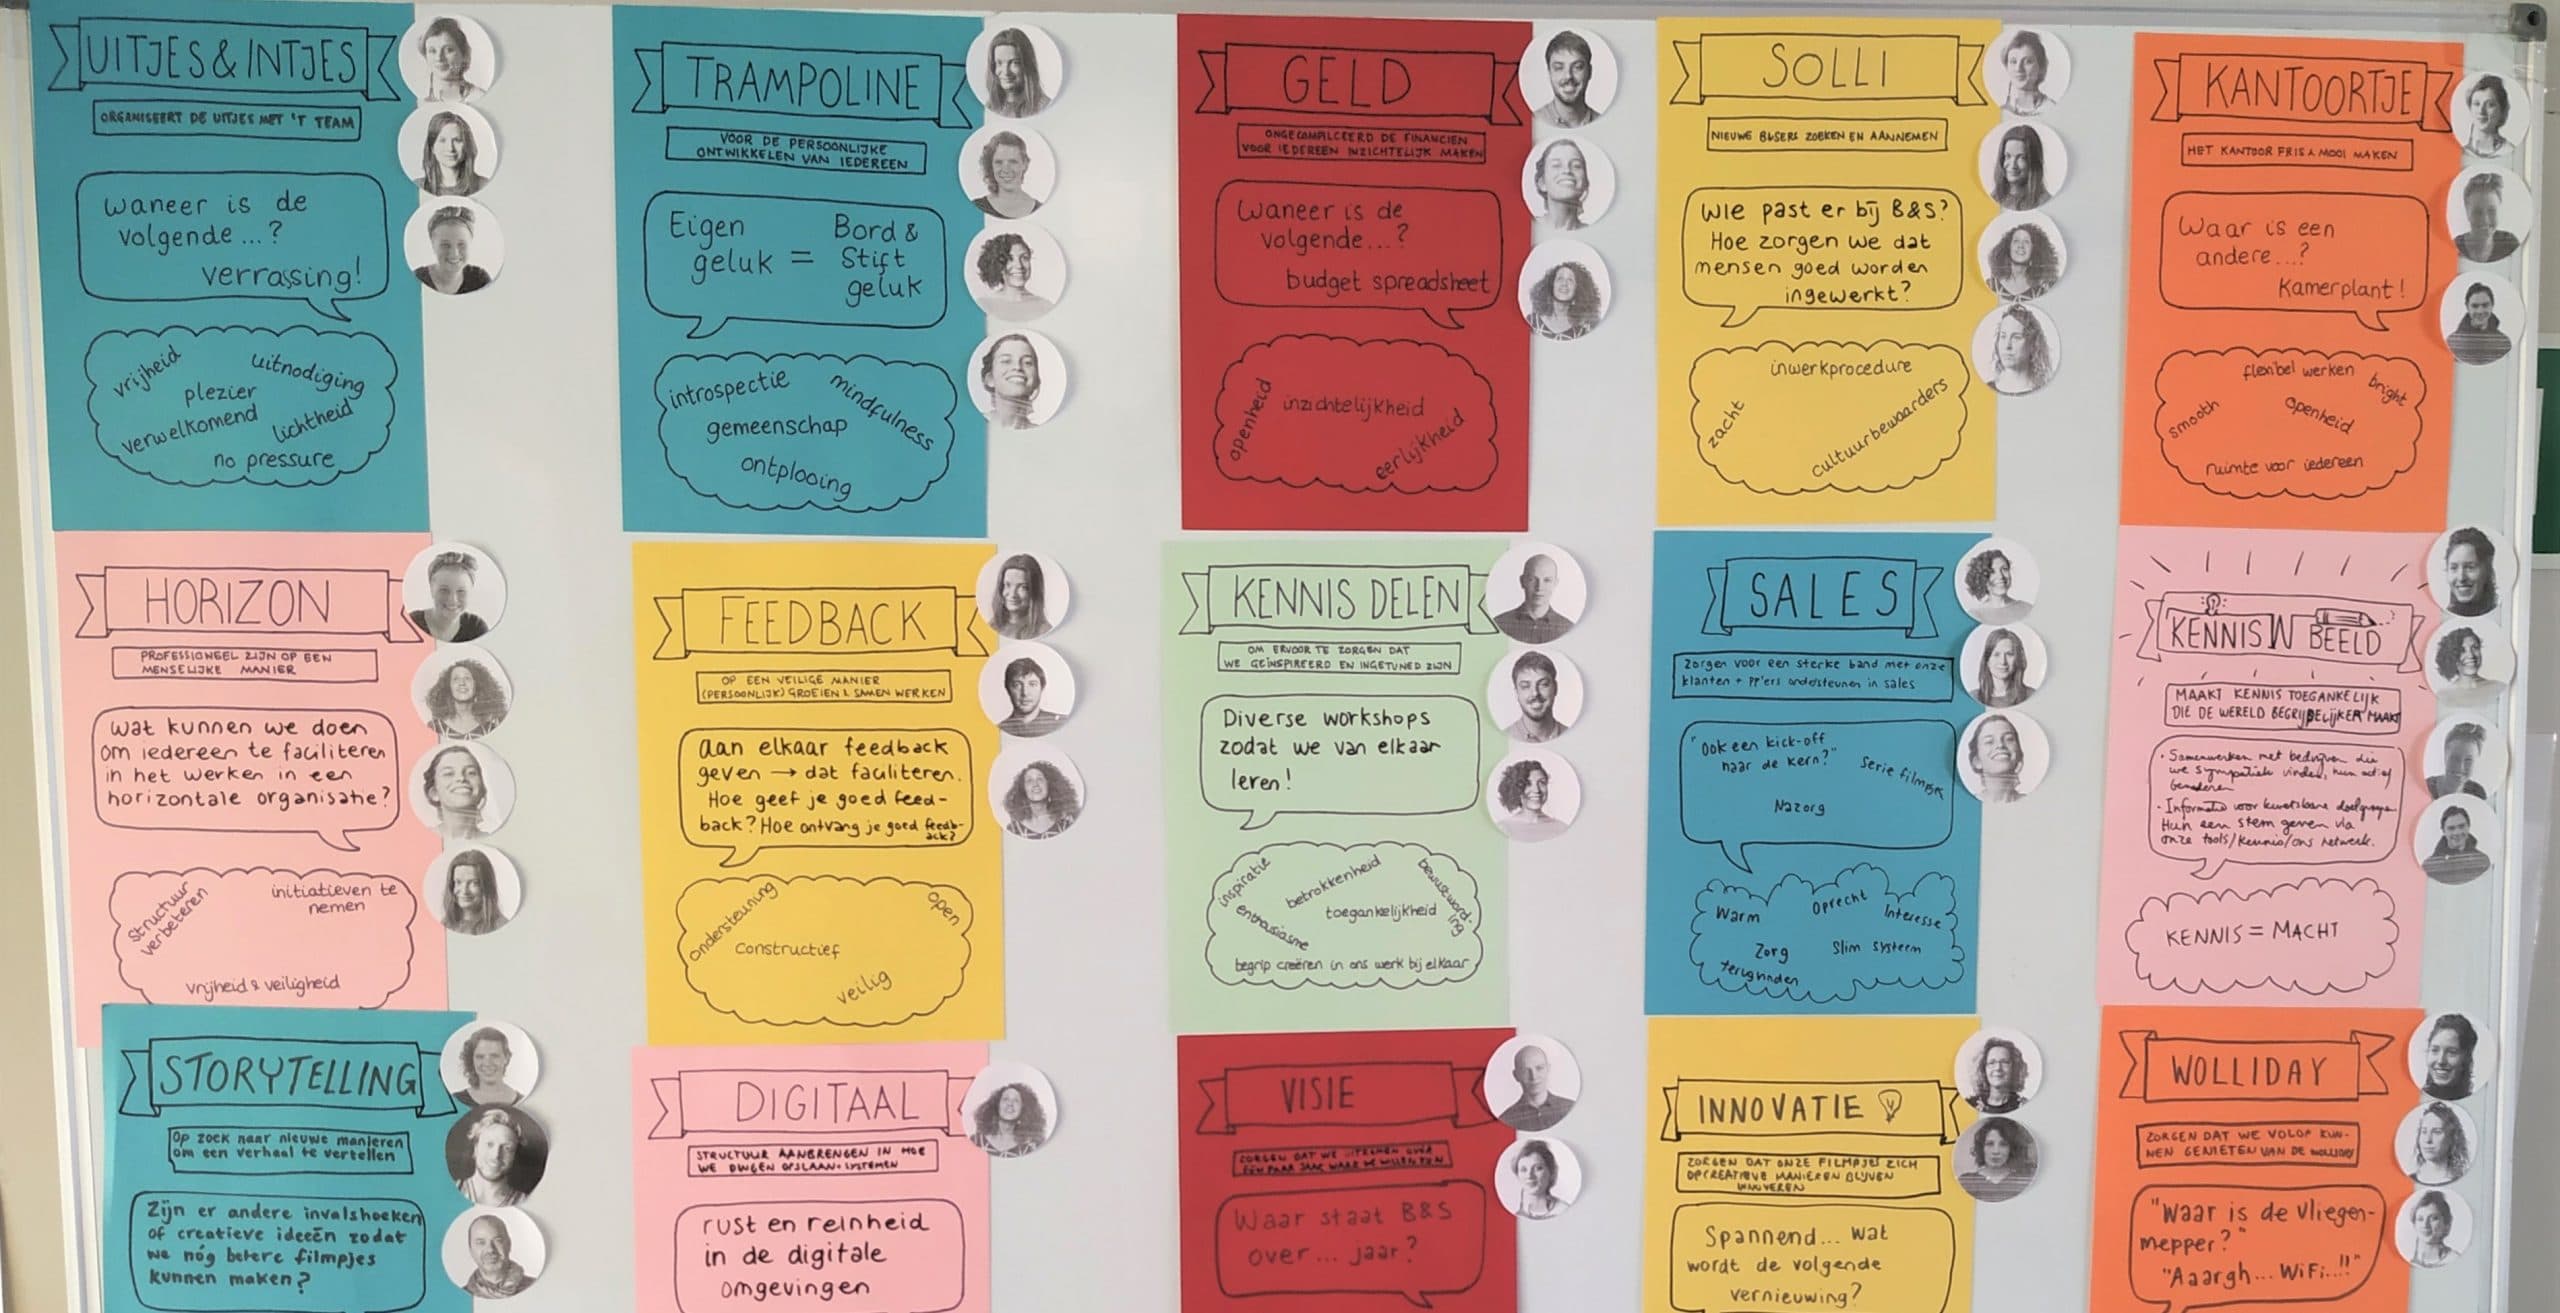 UITJES & INTJES
ORGANISEERT DE UITJES MET 'T TEAM
waneer is de
volgende...?
verrassing!
vrijheid
uitnodiging
plezier
verwelkomend
lichtheid
no pressure
TRAMPOLINE
VOOR DE PERSOONLIJKE
ONTWIKKELEN VAN IEDEREEN
Eigen
geluk =
Bord &
Stift
geluk
introspectie
mindfulness
gemeenschap
ontplooing
GELD
ONGECOMPILCEERD DE FINANCIEN
VOOR IEDEREEN INZICHTELIJK MAKEN
Waneer is de
volgende...?
budget spreadsheet
openheid
inzichtelijkheid
eerlijkheid
SOLLI
NIEUWE B&SERS ZOEKEN EN AANNEMEN
Wie past er bij B&S?
Hoe zorgen we dat
mensen goed worden
ingewerkt?
inwerkprocedure
zacht
cultuurbewaarders
KANTOORTJE
HET KANTOOR FRIS & MOOI MAKEN
Waar is een
andere...?
Kamerplant!
flexibel werken
bright
smooth
openheid
ruimte voor iedereen
HORIZON
PROFESSIONEEL ZIJN OP EEN
MENSELIJKE MANIER
Wat kunnen we doen
om iedereen te faciliteren
in het werken in een
horizontale organisatie?
structuur
verbeteren
initiatieven te
nemen
vrijheid & veiligheid
FEEDBACK
OP EEN VEILIGE MANIER
(PERSOONLIJK) GROEIEN & SAMEN WERKEN
Aan elkaar feedback
geven → dat faciliteren.
Hoe geef je goed feed-
back? Hoe ontvang je goed feedb-
ack?
ondersteuning
open
constructief
veilig
KENNIS DELEN
OM ERVOOR TE ZORGEN DAT
WE GEÏNSPIREERD EN INGETUNED ZIJN
Diverse workshops
zodat we van elkaar
leren!
inspiratie
betrokkenheid
bewustword-
ing
enthousiasme
toegankelijkheid
begrip creëren in ons werk bij elkaar
SALES
Zorgen voor een sterke band met onze
klanten + PP'ers ondersteunen in sales
"Ook een kick-off
naar de kern?"
Serie filmpjes
Nazorg
Warm
Oprecht
Interesse
Zorg
Slim systeem
terugvinden
KENNIS IN BEELD
MAAKT KENNIS TOEGANKELIJK
DIE DE WERELD BEGRIJPELIJKER MAAKT
• Samenwerken met bedrijven die
we sympathiek vinden, hun actief
benaderen
• Informatie voor kwetsbare doelgroepen
Hun een stem geven via
onze tools/kennis/ons netwerk.
KENNIS = MACHT
STORYTELLING
Op zoek naar nieuwe manieren
om een verhaal te vertellen
Zijn er andere invalshoeken
of creatieve ideeën zodat
we nóg betere filmpjes
kunnen maken?
DIGITAAL
STRUCTUUR AANBRENGEN IN HOE
WE DINGEN OPSLAAN + SYSTEMEN
rust en reinheid
in de digitale
omgevingen
VISIE
ZORGEN DAT WE UITZOEKEN OVER
EEN PAAR JAAR WAAR WE WILLEN ZIJN
Waar staat B&S
over... jaar?
INNOVATIE
ZORGEN DAT ONZE FILMPJES ZICH
OP CREATIEVE MANIEREN BLIJVEN
INNOVEREN
Spannend... wat
wordt de volgende
vernieuwing?
WOLLIDAY
ZORGEN DAT WE VOLOP KUN-
NEN GENIETEN VAN DE WOLLIDAY
"Waar is de vliegen-
mepper?"
"Aaargh... WiFi..!!"